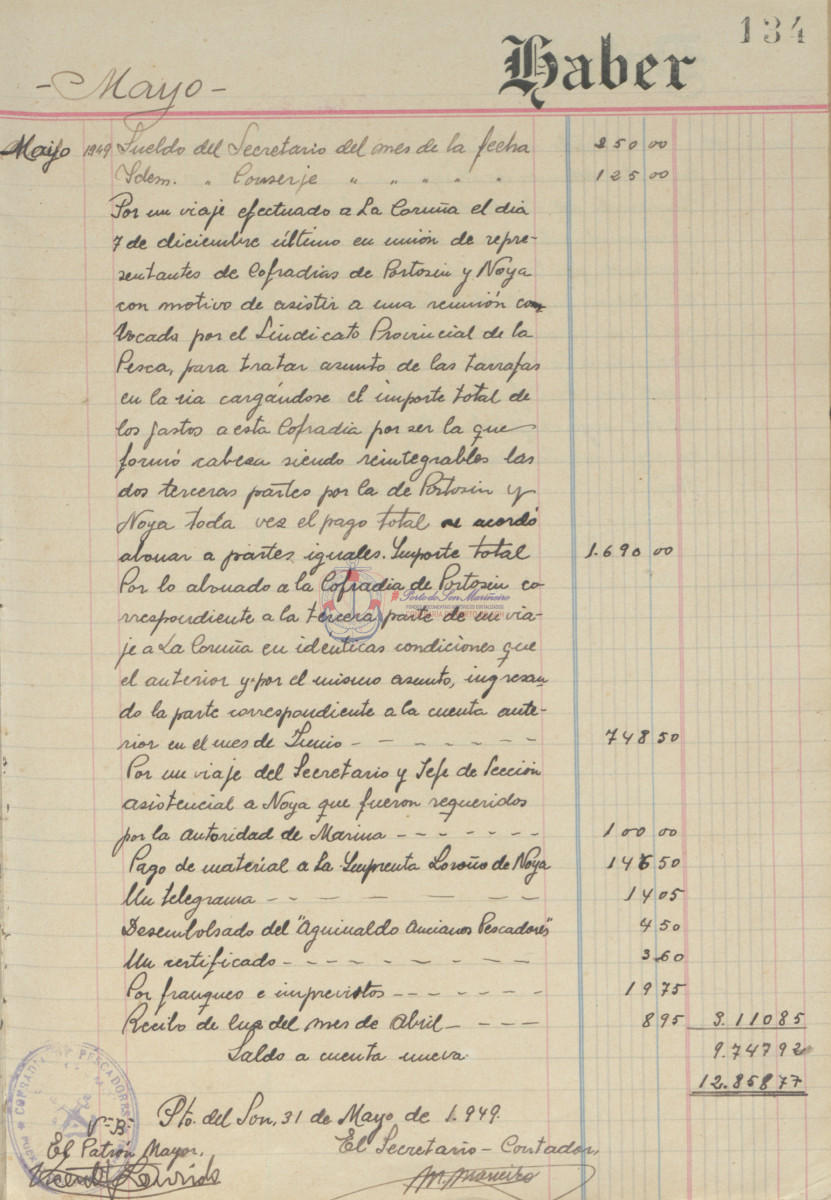 134
- Mayo - Haber
Mayo 1949 Sueldo del Secretario del mes de la fecha 250 00
Idem. " Conserje " " " " " 125 00
Por un viaje efectuado a La Coruña el dia
7 de diciembre último en unión de repre-
sentantes de Cofradias de Portosin y Noya
con motivo de asistir a una reunión con
vocada por el Sindicato Provincial de la
Pesca, para tratar asunto de las tarrafas
en la ria cargándose el importe total de
los gastos a esta Cofradia por ser la que
formó cabeza siendo reintegrables las
dos terceras partes por la de Portosin y
Noya toda vez el pago total se acordó
abonar a partes iguales. Importe total 1.690 00
Por lo abonado a la Cofradia de Portosin co
rrespondiente a la tercera parte de un via-
je a La Coruña en identicas condiciones que
el anterior y por el mismo asunto, ingresan
do la parte correspondiente a la cuenta ante-
rior en el mes de Junio - - - - - - 748 50
Por un viaje del Secretario y Jefe de Sección
asistencial a Noya que fueron requeridos
por la autoridad de Marina - - - - - - 100 00
Pago de material a La Imprenta Loroño de Noya 146 50
Un telegrama - - - - - - - 14 05
Desembolsado del "Aguinaldo Ancianos Pescadores" 4 50
Un certificado - - - - - - - - 3 60
Por franqueo e imprevistos - - - - - - 19 75
Recibo de luz del mes de Abril - - - - 8 95 3.110 85
Saldo a cuenta nueva 9.747 92
12.858 77
Pto. del Son, 31 de Mayo de 1.949.
Vº Bº
El Patrón Mayor, El Secretario - Contador,
M. Maneiro
Porto do Son Mariñeiro
COFRADIA DE PESCADORES